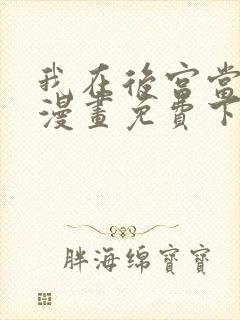 我在後宮當
漫畫免費下
胖海绵寶寶